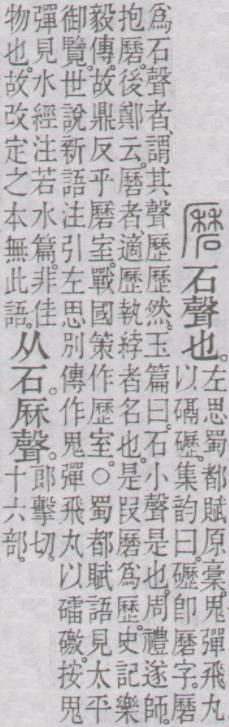 磿石聲也。
左思蜀都賦原稾。鬼彈飛丸
以礰。集韵曰。礰卽磿字。磿
爲石聲者、謂其聲歷歷然。玉篇曰。石小聲是也。周禮遂師。
抱磿。後鄭云。磿者、適歷執綍者名也。是叚磿爲歷。史記樂
毅傳。故鼎反乎磿室。戰國策作歷室。○蜀都賦語見太平
御覽。世說新語注引左思別傳作鬼彈飛丸以礌礉。按鬼
彈見水經注若水篇。非佳
物也。故改定之本無此語。
从石厤聲。
郎擊切。
十六部。